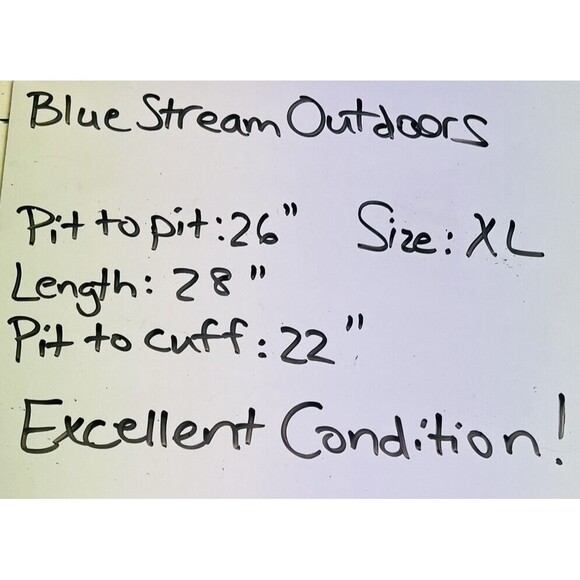 Blue Stream Outdoors
Pit to pit: 26" Size: XL
Length: 28"
Pit to cuff: 22"
Excellent Condition!